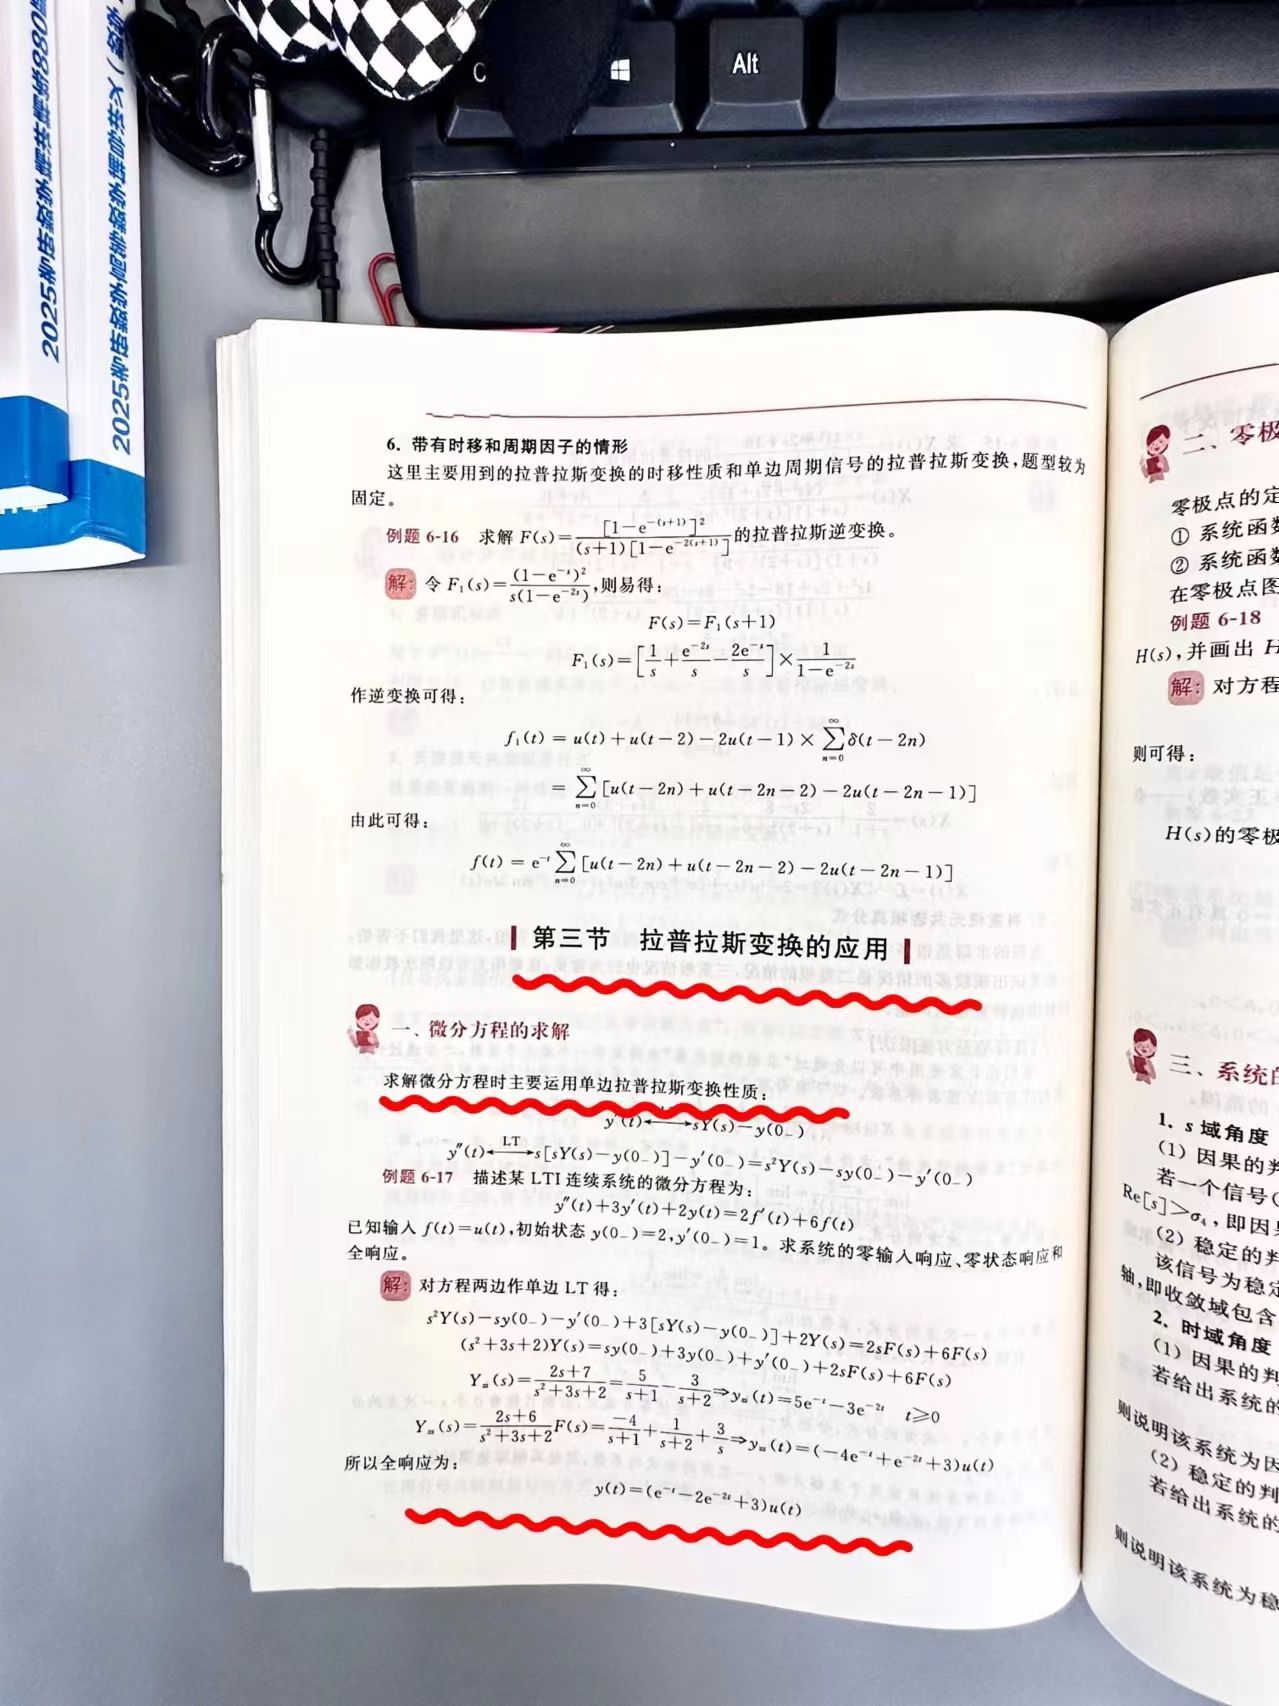 Alt
2025考研数学
2025考研数学
6. 带有时移和周期因子的情形
这里主要用到的拉普拉斯变换的时移性质和单边周期信号的拉普拉斯变换,题型较为
固定。
例题 6-16 求解 F(s)=\frac{[1-e^{-(s+1)}]^2}{(s+1)[1-e^{-2(s+1)}]}的拉普拉斯逆变换。
解: 令 F₁(s)=\frac{(1-e^{-s})^2}{s(1-e^{-2s})},则易得:
F(s)=F₁(s+1)
F₁(s)=[\frac{1}{s}+\frac{e^{-2s}}{s}-\frac{2e^{-s}}{s}]×\frac{1}{1-e^{-2s}}
作逆变换可得:
f₁(t) = u(t)+u(t-2)-2u(t-1)×\sum_{n=0}^{∞}δ(t-2n)
= \sum_{n=0}^{∞}[u(t-2n)+u(t-2n-2)-2u(t-2n-1)]
由此可得:
f(t) = e^{-t}\sum_{n=0}^{∞}[u(t-2n)+u(t-2n-2)-2u(t-2n-1)]
第三节 拉普拉斯变换的应用
一、微分方程的求解
求解微分方程时主要运用单边拉普拉斯变换性质:
y′(t)⟷sY(s)-y(0₋)
y″(t)\overset{LT}{⟷}s[sY(s)-y(0₋)]-y′(0₋)=s²Y(s)-sy(0₋)-y′(0₋)
例题 6-17 描述某 LTI 连续系统的微分方程为:
y″(t)+3y′(t)+2y(t)=2f′(t)+6f(t)
已知输入 f(t)=u(t),初始状态 y(0₋)=2,y′(0₋)=1。求系统的零输入响应、零状态响应和
全响应。
解: 对方程两边作单边 LT 得:
s²Y(s)-sy(0₋)-y′(0₋)+3[sY(s)-y(0₋)]+2Y(s)=2sF(s)+6F(s)
(s²+3s+2)Y(s)=sy(0₋)+3y(0₋)+y′(0₋)+2sF(s)+6F(s)
Y(s)=\frac{2s+7}{s²+3s+2}=\frac{5}{s+1}-\frac{3}{s+2}⇒y(t)=5e^{-t}-3e^{-2t} t≥0
Y(s)=\frac{2s+6}{s²+3s+2}F(s)=\frac{-4}{s+1}+\frac{1}{s+2}+\frac{3}{s}⇒y(t)=(-4e^{-t}+e^{-2t}+3)u(t)
所以全响应为:
y(t)=(e^{-t}-2e^{-2t}+3)u(t)
二、零极
零极点的定
① 系统函数
② 系统函数
在零极点图
例题 6-18
H(s),并画出 H
解: 对方程
则可得:
H(s)的零极
三、系统的
1. s 域角度
(1) 因果的判
若一个信号(
Re[s]>σ, 即因果
(2) 稳定的判
该信号为稳定
轴,即收敛域包含
2. 时域角度
(1) 因果的判
若给出系统的
则说明该系统为因
(2) 稳定的判
若给出系统的
则说明该系统为稳